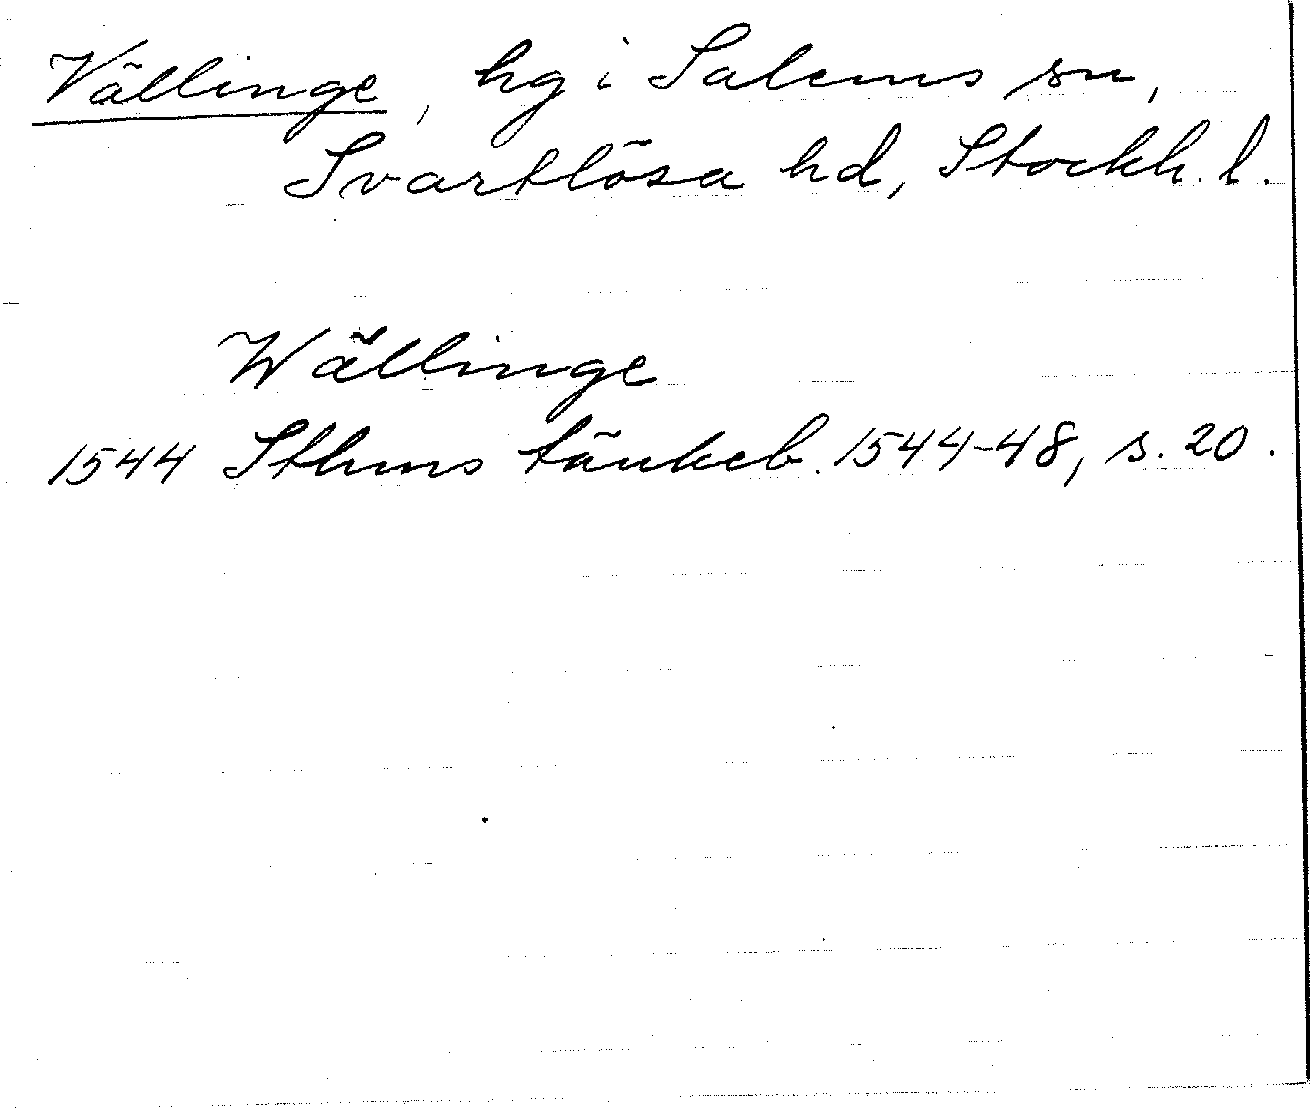 Vällinge, hg i Salems sn,
Svartlösa hd, Stockh. l.
Wällinge
1544 Sthms tänkeb. 1544-48, s. 20.